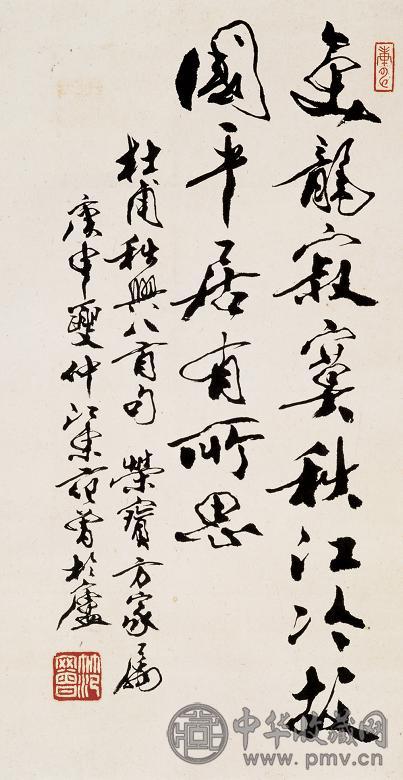 魚龍寂寞秋江冷故
國平居有所思
杜甫秋興八首句 榮寶方家屬
庚申夏仲江東范曾於廬
范曾
中华收藏网
www.pmv.cn